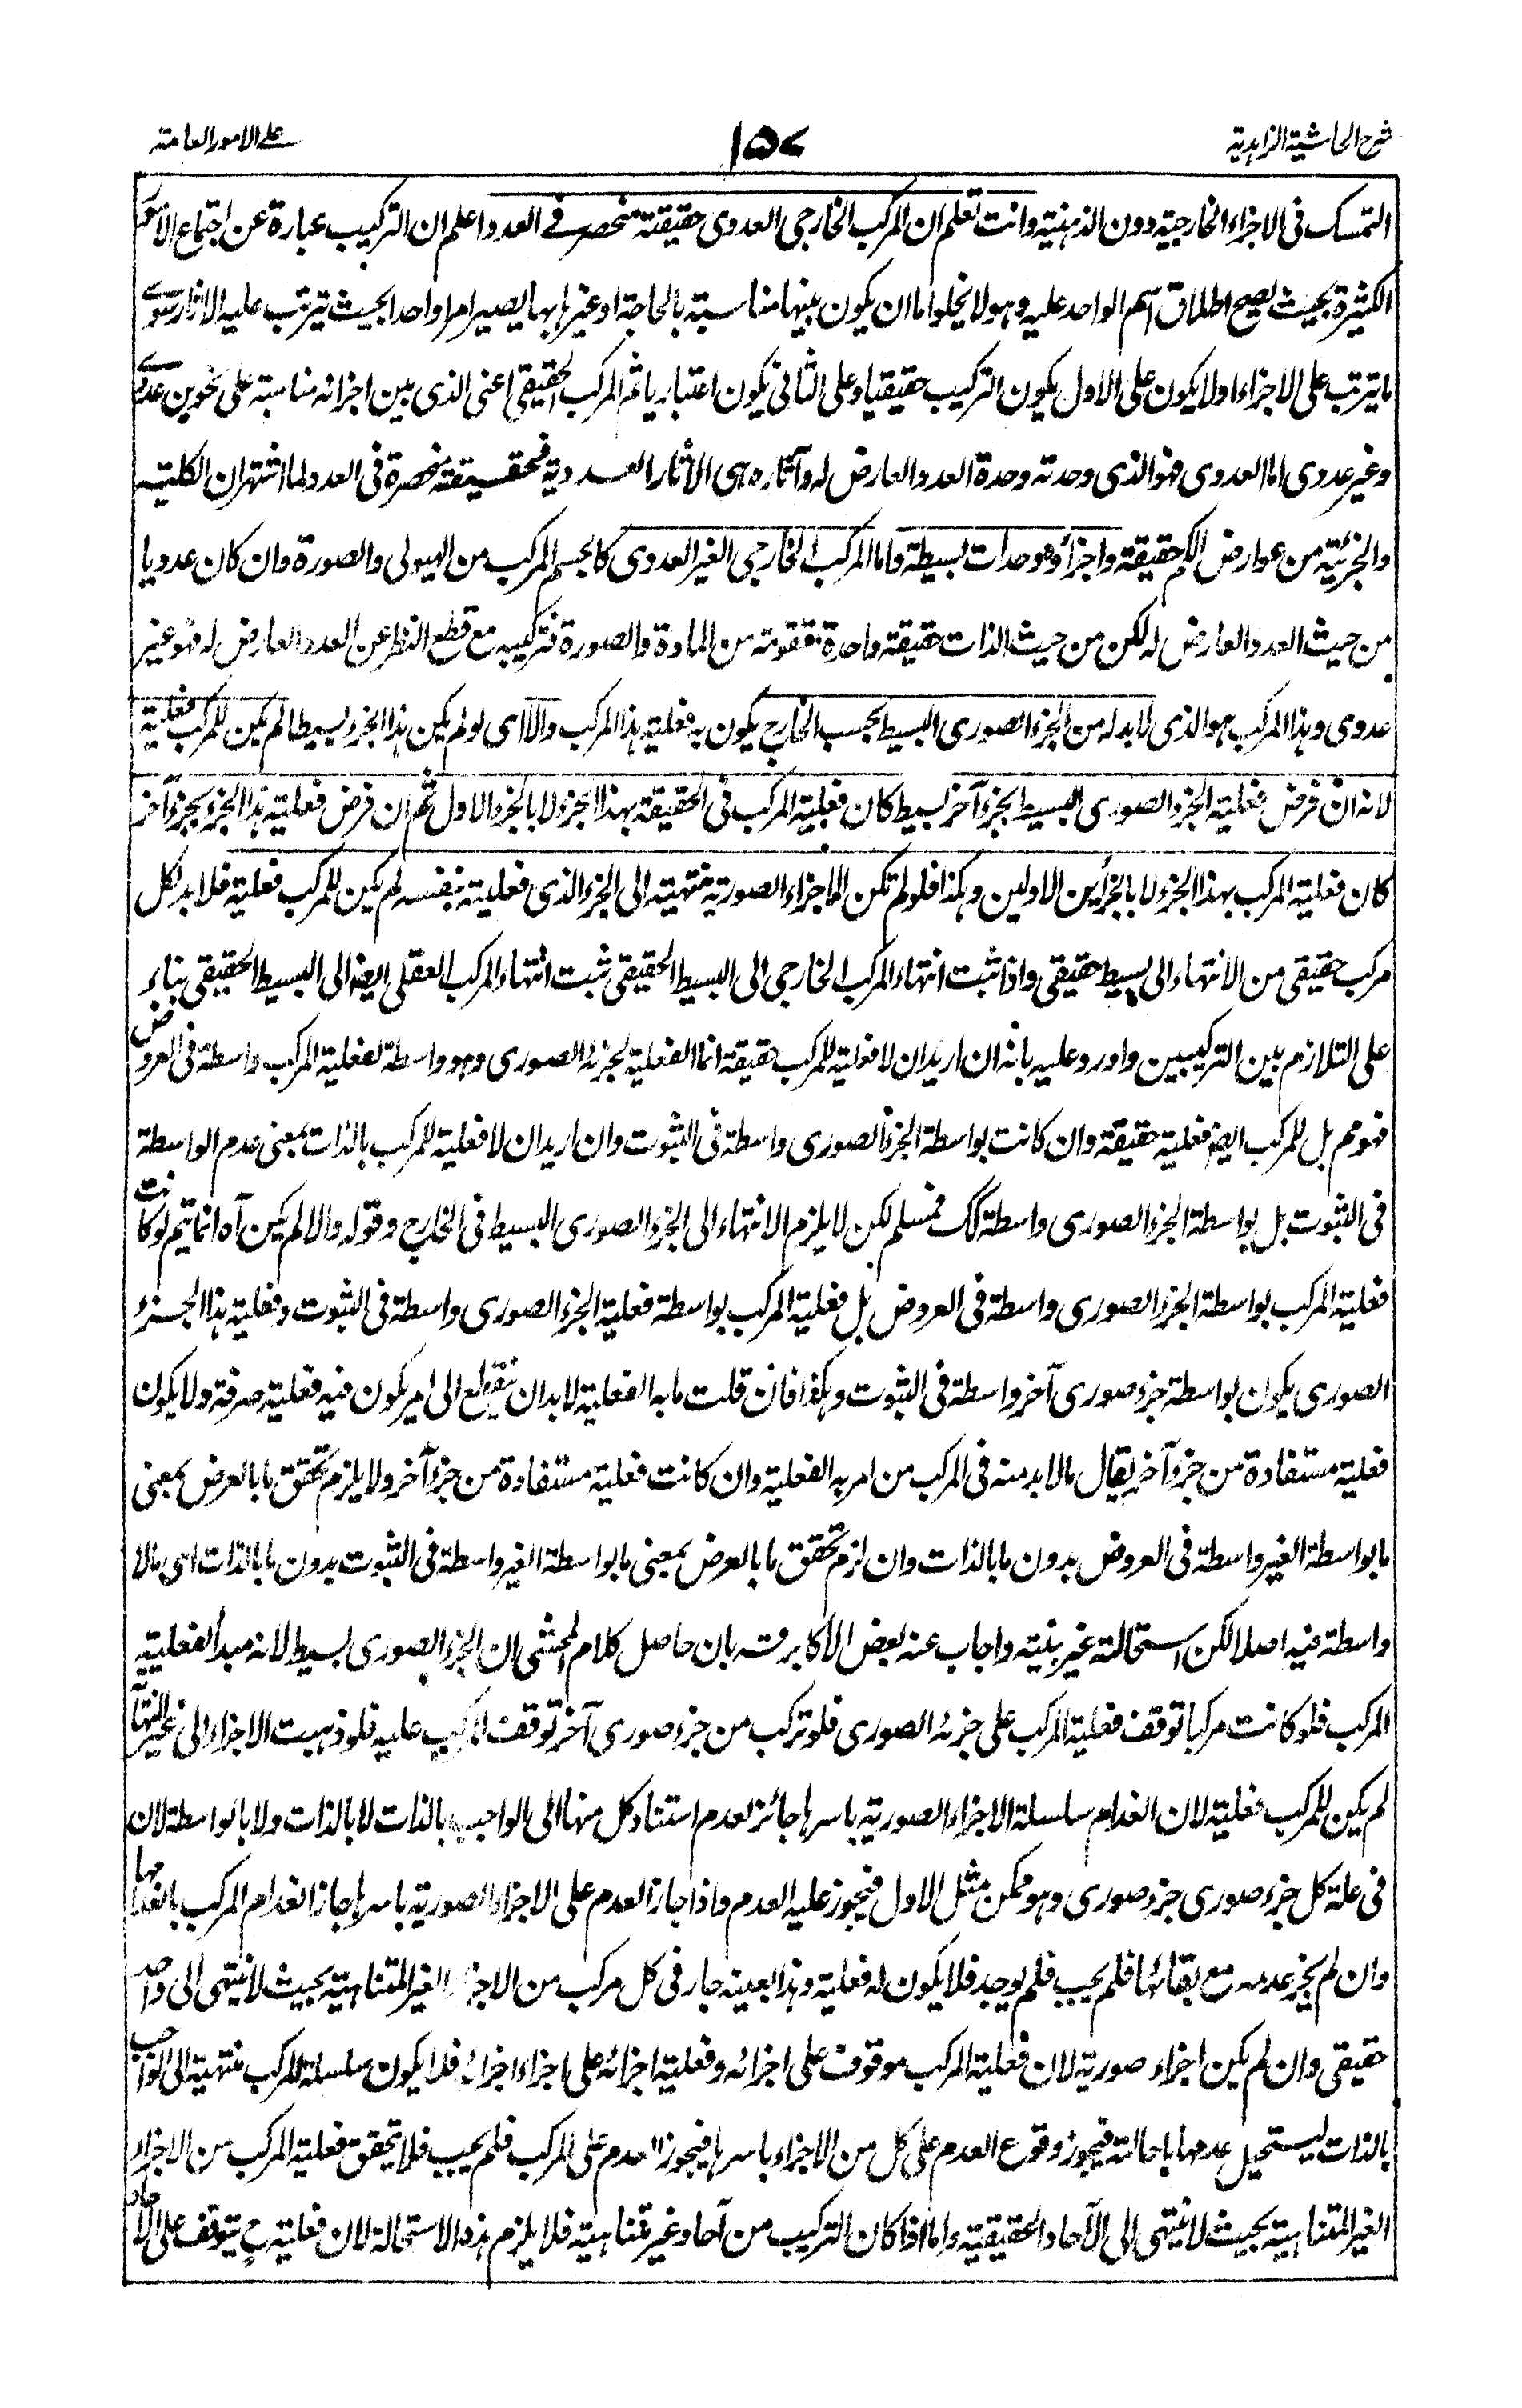 شرح الحاشية الزاهدية
١٥٧
على الامور العامة
التمسك فى الاجزاء الخارجية دون الذهنية وانت تعلم ان المركب الخارجى العددى حقيقته منحصر فى العدد اعلم ان التركيب عبارة عن اجتماع الامور
الكثيرة بحيث يصح اطلاق اسم الواحد عليه وهو لا يخلوا اما ان يكون بينها مناسبة بالحاجة او غيرها بها يصير امرا واحدا بحيث تيرتب عليه الاثار سوى
ما يترتب على الاجزاء اولا يكون على الاول يكون التركيب حقيقيا وعلى الثانى يكون اعتباريا ثم المركب الحقيقى اعنى الذى بين اجزائه مناسبة على نحوين عددى
وغير عددى اما العددى فهو الذى وحدته وحدة العدد العارض له وآثاره هى الاثار العددية فحقيقته منحصرة فى العدد لما اشتهر ان الكلية
والجزئية من عوارض الكم حقيقة واجزأوه وحدات بسيطة واما المركب الخارجى الغير العددى كالجسم المركب من الهيولى والصورة وان كان عدديا
من حيث العدد العارض له لكن من حيث الذات حقيقة واحدة متقومة من المادة والصورة فتركيبه مع قطع النظر عن العدد العارض له فهو غير
عددى وهذا المركب هو الذى لا بد له من الجزء الصورى البسيط بحسب الخارج يكون به فعلية هذا المركب والا اى لو لم يكن هذا الجزء بسيطا لم يكن للمركب فعلية
لانه ان فرض فعلية الجزء الصورى البسيط بجزء آخر بسيط كان فعلية المركب فى الحقيقة بهذا الجزء لا بالجزء الاول ثم ان فرض فعلية هذا الجزء بجزء آخر
كان فعلية المركب بهذا الجزء لا بالجزأين الاولين وهكذا فلو لم تكن الاجزاء الصورية منتهية الى الجزء الذى فعليته بنفسه لم يكن للمركب فعلية فلا بد لكل
مركب حقيقى من الانتهاء الى بسيط حقيقى واذا ثبت انتهاء المركب الخارجى الى البسيط الحقيقى ثبت انتهاء المركب العقلى ايضا الى البسيط الحقيقى بناء
على التلازم بين التركيبين واورد عليه بانه ان اريد ان لا فعلية للمركب حقيقة انما الفعلية لجزئه الصورى وهو واسطة لفعلية المركب واسطة فى العروض
فهو مم بل للمركب ايضا فعلية حقيقة وان كانت بواسطة الجزء الصورى واسطة فى الثبوت وان اريد ان لا فعلية للمركب بالذات بمعنى عدم الواسطة
فى الثبوت بل بواسطة الجزء الصورى واسطة كك فمسلم لكن لا يلزم الانتهاء الى الجزء الصورى البسيط فى الخارج وقوله والا لم يكن آه انما يتم لو كانت
فعلية المركب بواسطة الجزء الصورى واسطة فى العروض بل فعلية المركب بواسطة فعلية الجزء الصورى واسطة فى الثبوت وفعلية هذا الجزء
الصورى يكون بواسطة جزء صورى آخر واسطة فى الثبوت وهكذا فان قلت ما به الفعلية لا بد ان ينقطع الى امر يكون فيه فعلية صرفة ولا يكون
فعلية مستفادة من جزء آخر يقال ما لا بد منه فى المركب من امر به الفعلية وان كانت فعلية مستفادة من جزء آخر ولا يلزم تحقق ما بالعرض بمعنى
ما بواسطة الغير واسطة فى العروض بدون ما بالذات وان لزم تحقق ما بالعرض بمعنى ما بواسطة الغير واسطة فى الثبوت بدون ما بالذات اى ما لا
واسطة فيه اصلا لكن استحالته غير بينة واجاب عنه بعض الاكابر قده بان حاصل كلام المحشى ان الجزء الصورى بسيط لانه مبدأ لفعلية
المركب فلو كانت مركبا توقف فعلية المركب على جزئه الصورى فلو تركب من جزء صورى آخر توقف المركب عليه فلو ذهبت الاجزاء الى غير النهاية
لم يكن للمركب فعلية لان انعدام سلسلة الاجزاء الصورية باسرها جائز لعدم استناد كل منها الى الواجب بالذات لا بالذات ولا بالواسطة لان
فى علة كل جزء صورى جزء صورى وهو ممكن مثل الاول فيجوز عليه العدم واذا جاز العدم على الاجزاء الصورية باسرها جاز انعدام المركب بانعدامها
وان لم يجز عدمه مع بقائها فلم يجب فلم يوجد فلا يكون له فعلية وهذا بعينه جار فى كل مركب من الاجزاء الغير المتناهية بحيث لا ينتهى الى واحد
حقيقى وان لم يكن اجزاء صورية لان فعلية المركب موقوف على اجزائه وفعلية اجزائه على اجزاء اجزائه فلا يكون سلسلة المركب منتهية الى الواجب
بالذات ليستحيل عدمها باحالته فيجوز وقوع العدم على كل من الاجزاء باسرها فيجوز العدم على المركب فلم يجب فلا يتحقق فعلية المركب من الاجزاء
الغير المتناهية بحيث لا ينتهى الى الآحاد الحقيقية واما اذا كان التركيب من آحاد غير متناهية فلا يلزم هذه الاستحالة لان فعلية ح يتوقف على الآحاد